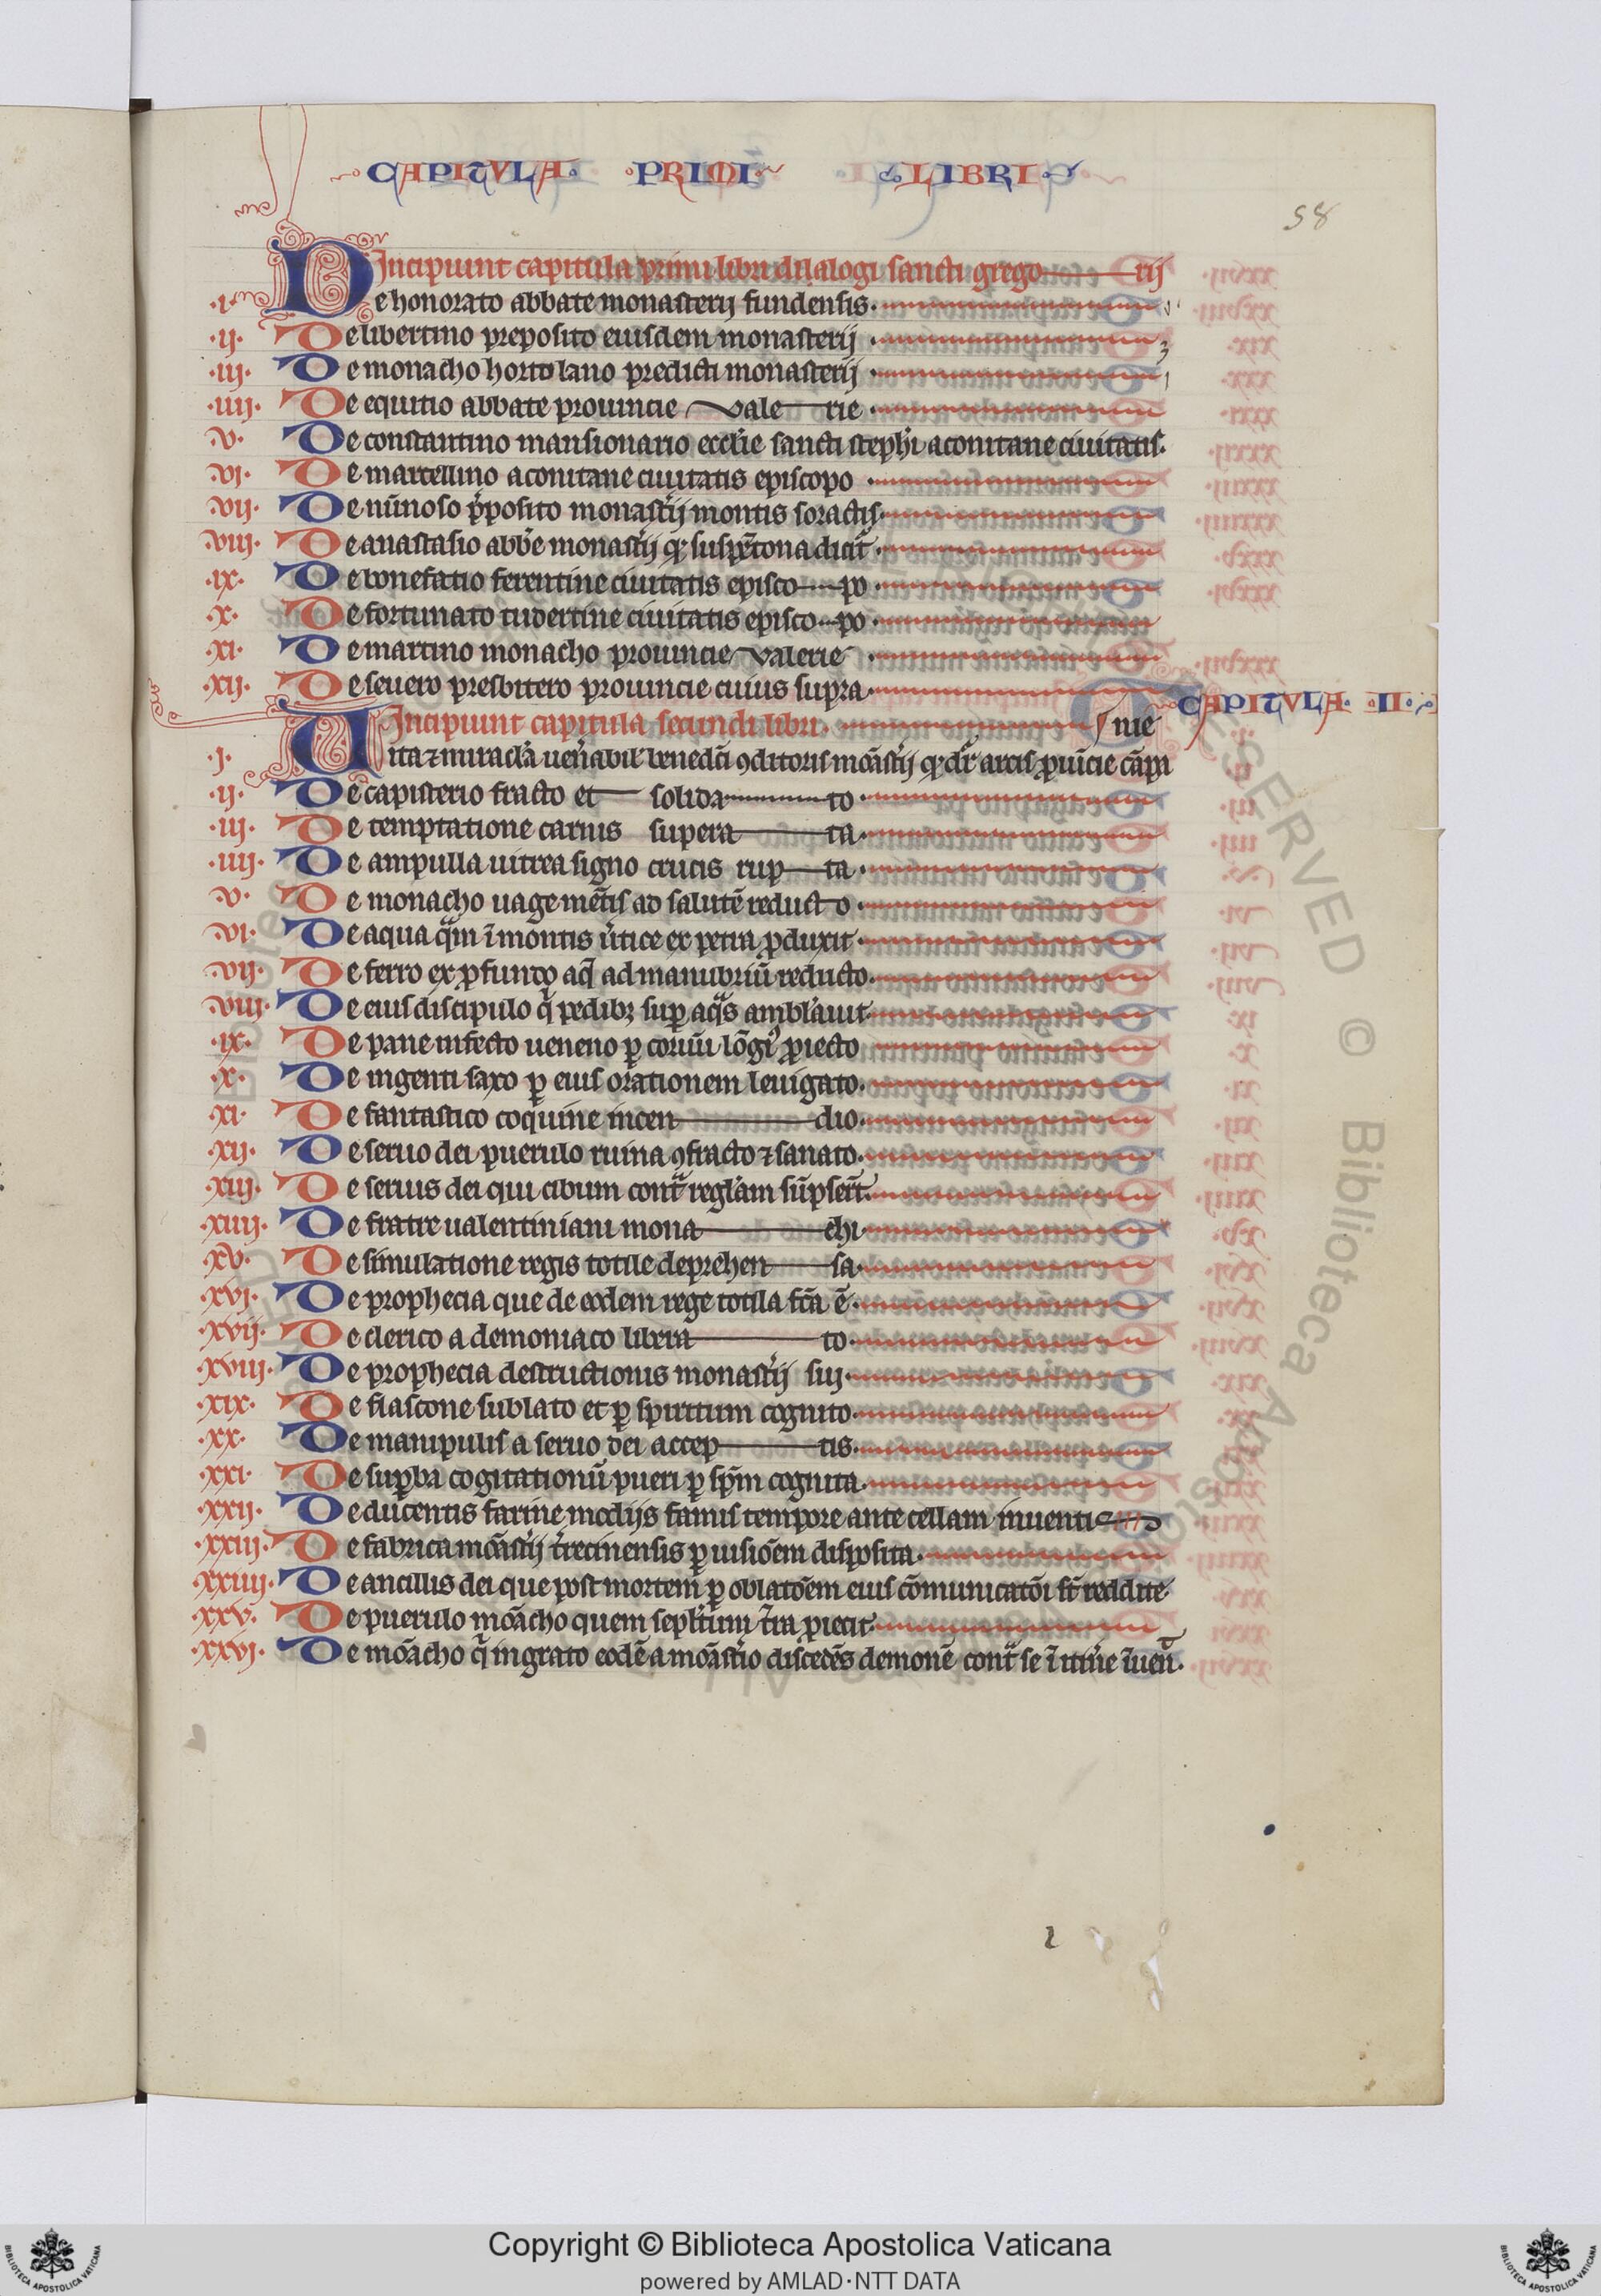 CAPITVLA· PRIMI· LIBRI·
58
Incipiunt capitula primi libri dialogi sancti grego rij
·i· De honorato abbate monasterij fundensis·
·ij· De libertino preposito eiusdem monasterij·
·iij· De monacho hortolano predicti monasterij·
·iiij· De equitio abbate prouincie vale rie·
·v· De constantino mansionario eccłie sancti stephi aconitane ciuitatis·
·vi· De martellino aconitane ciuitatis episcopo·
·vij· De nūnoso p̄posito monast̄ij montis soractis·
·viij· De anastasio abbē monast̄ij qđ suppētona dicit᷑·
·ix· De bonefatio ferentine ciuitatis episco po·
·x· De fortunato tudertine ciuitatis episco po·
·xi· De martino monacho prouincie valerie·
·xij· De seuero presbitero prouincie cuius supra·
CAPITVLA· II·
Incipiunt capitula secundi libri· nie
·j· Uita ⁊ miracła uen̄abił benedc̄i ꝯditoris mōast̄ij qđ dr̄ arcis ꝓuīcie cāpa
·ij· De capisterio fracto et solida to·
·iij· De temptatione carnis supera ta·
·iiij· De ampulla uitrea signo crucis rup ta·
·v· De monacho uage mētis ad salutē reducto·
·vi· De aqua quam ī montis ūtice ex petra ꝓduxit·
·vij· De ferro ex ꝓfundo aq̄ ad manubriū reducto·
·viij· De eius discipulo q̄ pedibꝫ suꝑ aquas ambłauit·
·ix· De pane infecto ueneno ꝑ coruū lōgiꝰ ꝓiecto
·x· De ingenti saxo ꝑ eius orationem leuigato·
·xi· De fantastico coquine incen dio·
·xij· De seruo dei puerulo ruina ꝯfracto ⁊ sanato·
·xiij· De seruis dei qui cibum contra regłam sūpser̄t·
·xiiij· De fratre ualentiniani mona chi·
·xv· De simulatione regis totile deprehen sa·
·xvi· De prophecia que de eodem rege totila fc̄a ē·
·xvij· De clerico a demoniaco libera to·
·xviij· De prophecia destructionis monast̄ij sui·
·xix· De flascone sublato et ꝑ spiritum cognito·
·xx· De manipulis a seruo dei accep tis·
·xxi· De suꝑba cogitationū pueri ꝑ sp̄m cognita·
·xxij· De ducentis farine modijs famis tempore ante cellam inuentis
·xxiij· De fabrica mōast̄ij t̄recinensis ꝑ uisiōem disposita·
·xxiiij· De ancillis dei que post mortem ꝑ oblatōem eius cōmunicatōi st̄ reddite·
·xxv· De puerulo mōacho quem sepłtum t̄ra ꝓiecit·
·xxvi· De mōacho q̄ ingrato eodē a mōast̄io discedēs demonē contra se ī itin̄e īuen̄·
Copyright © Biblioteca Apostolica Vaticana
powered by AMLAD·NTT DATA